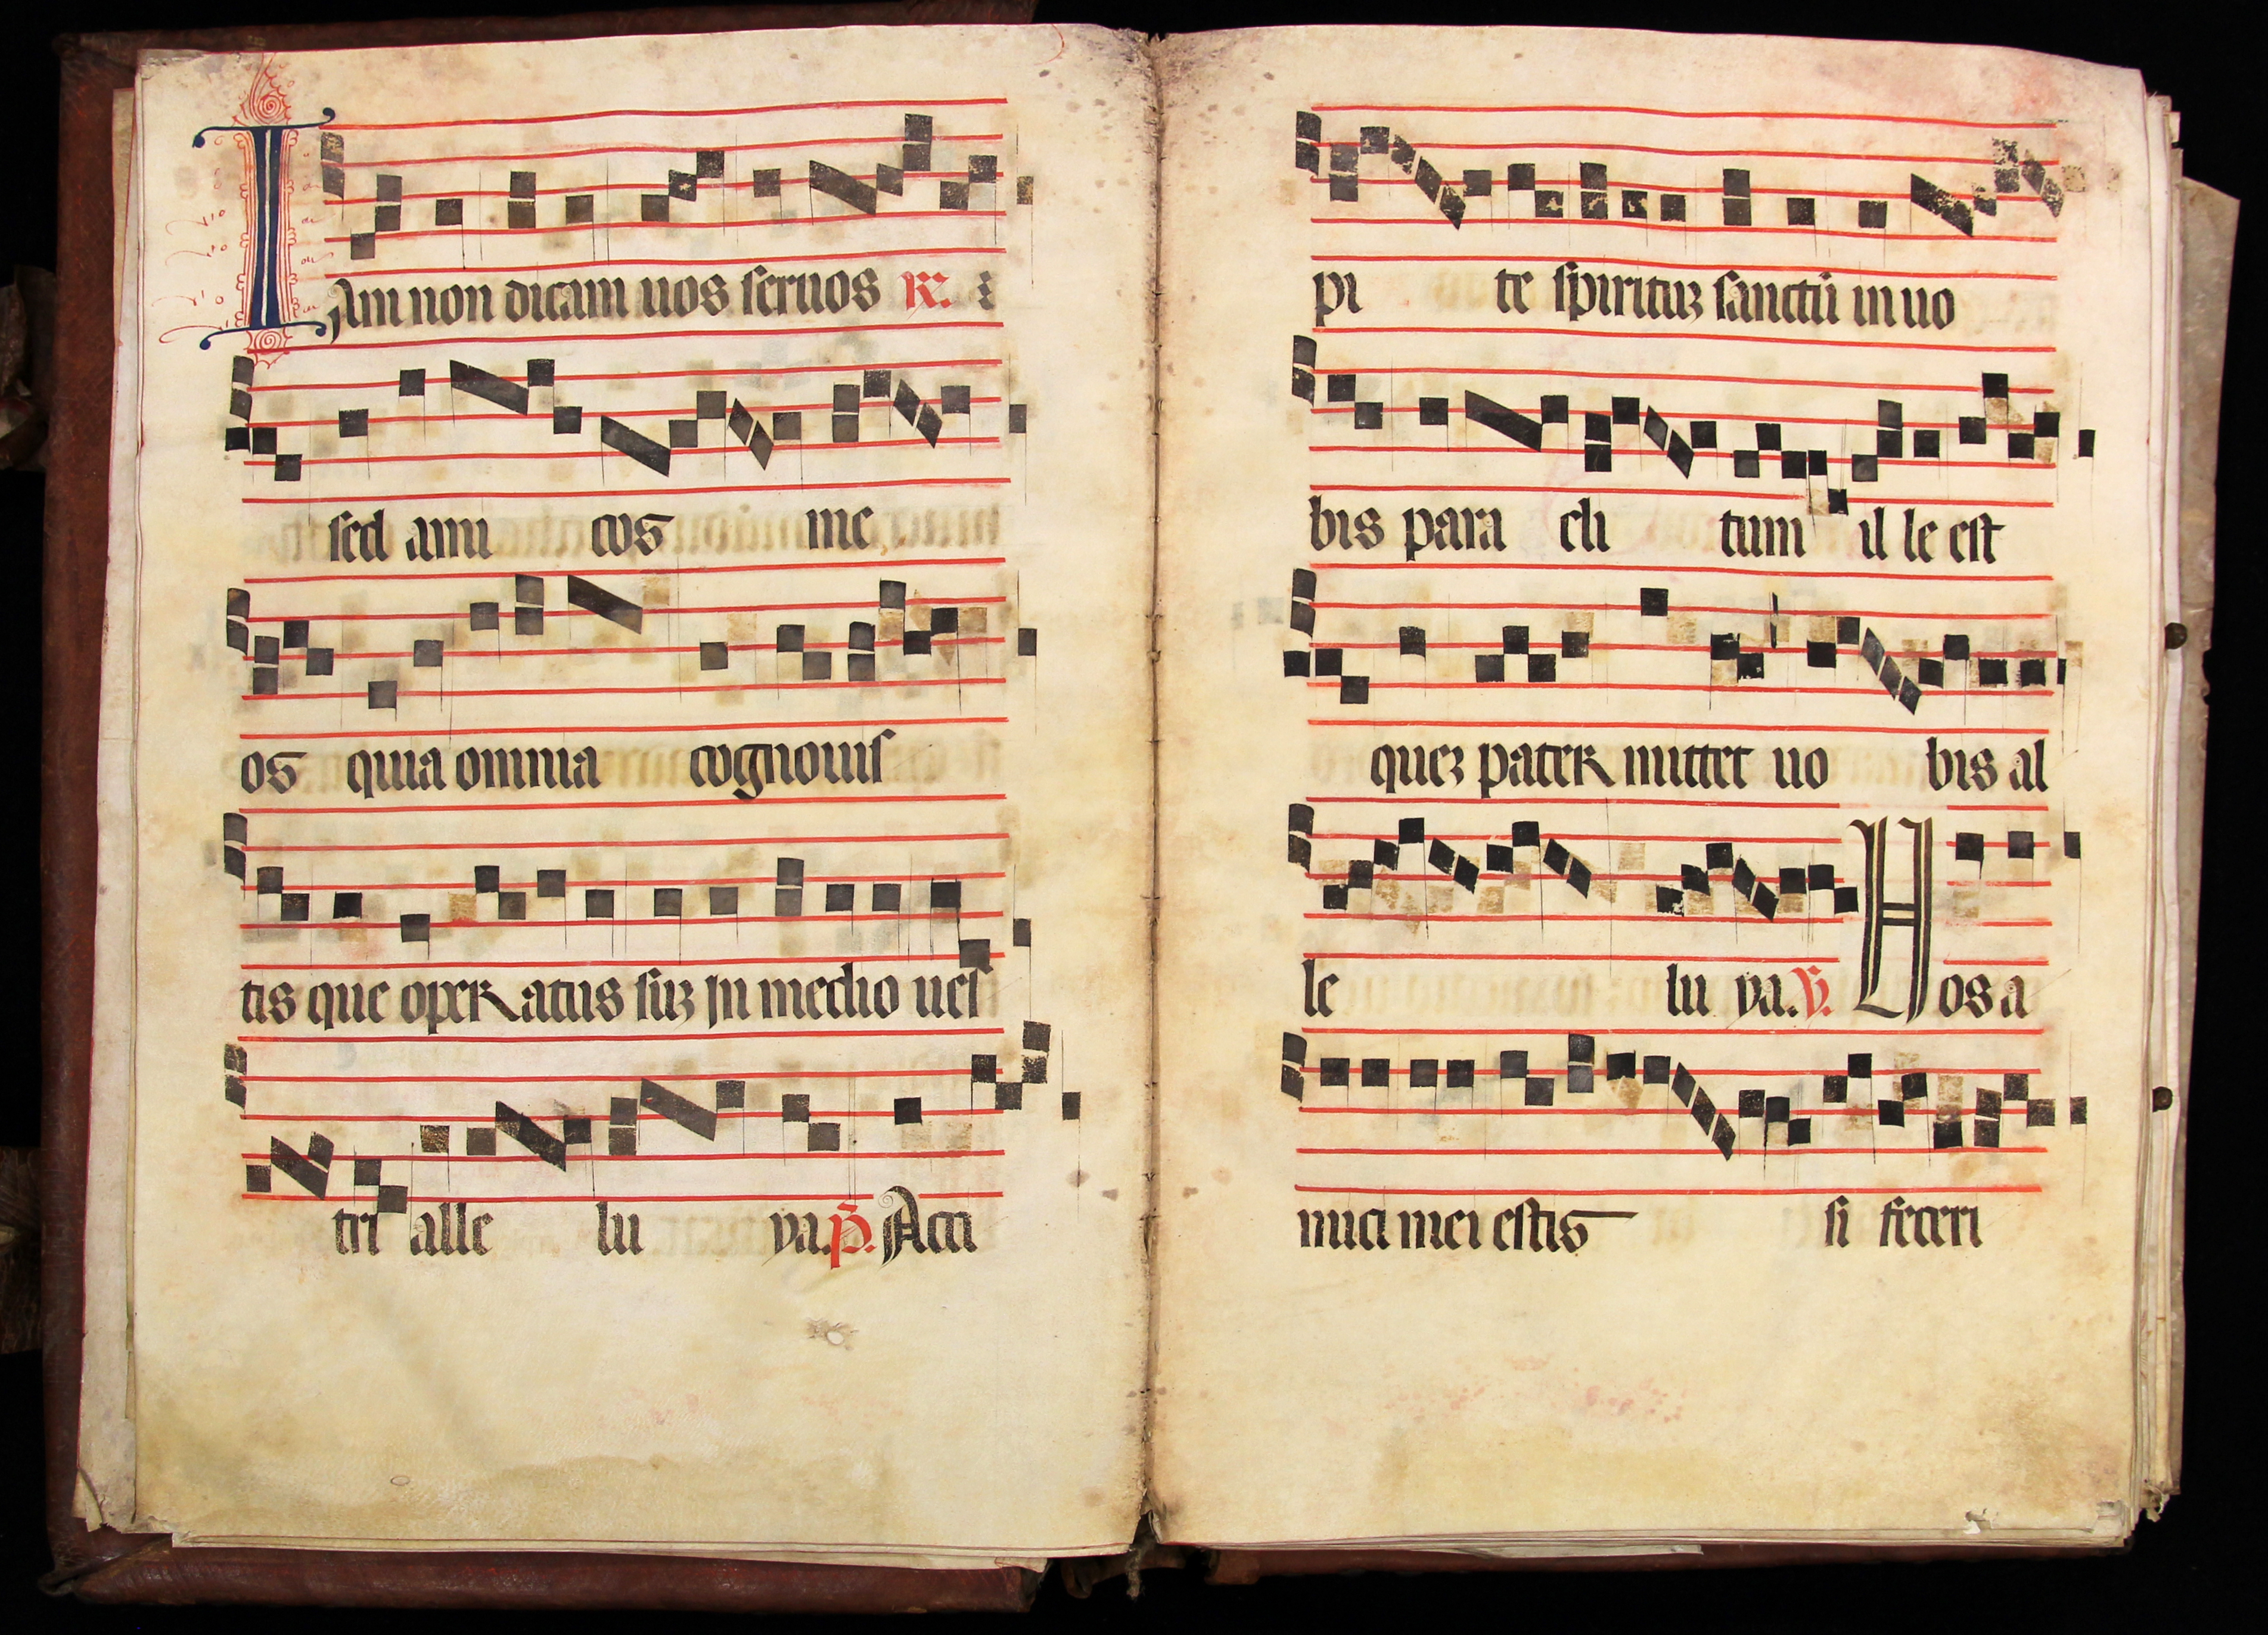 Iam non dicam uos seruos R.
sed ami cos me
os quia omnia cognouis
tis que operatus suꝫ in medio ues
tri alle lu ya. p̄. Acci
pi te spirituꝫ sanctū in uo
bis para cli tum il le est
queꝫ pater mittet uo bis al
le lu ya. V. Uos a
mici mei estis si feceri